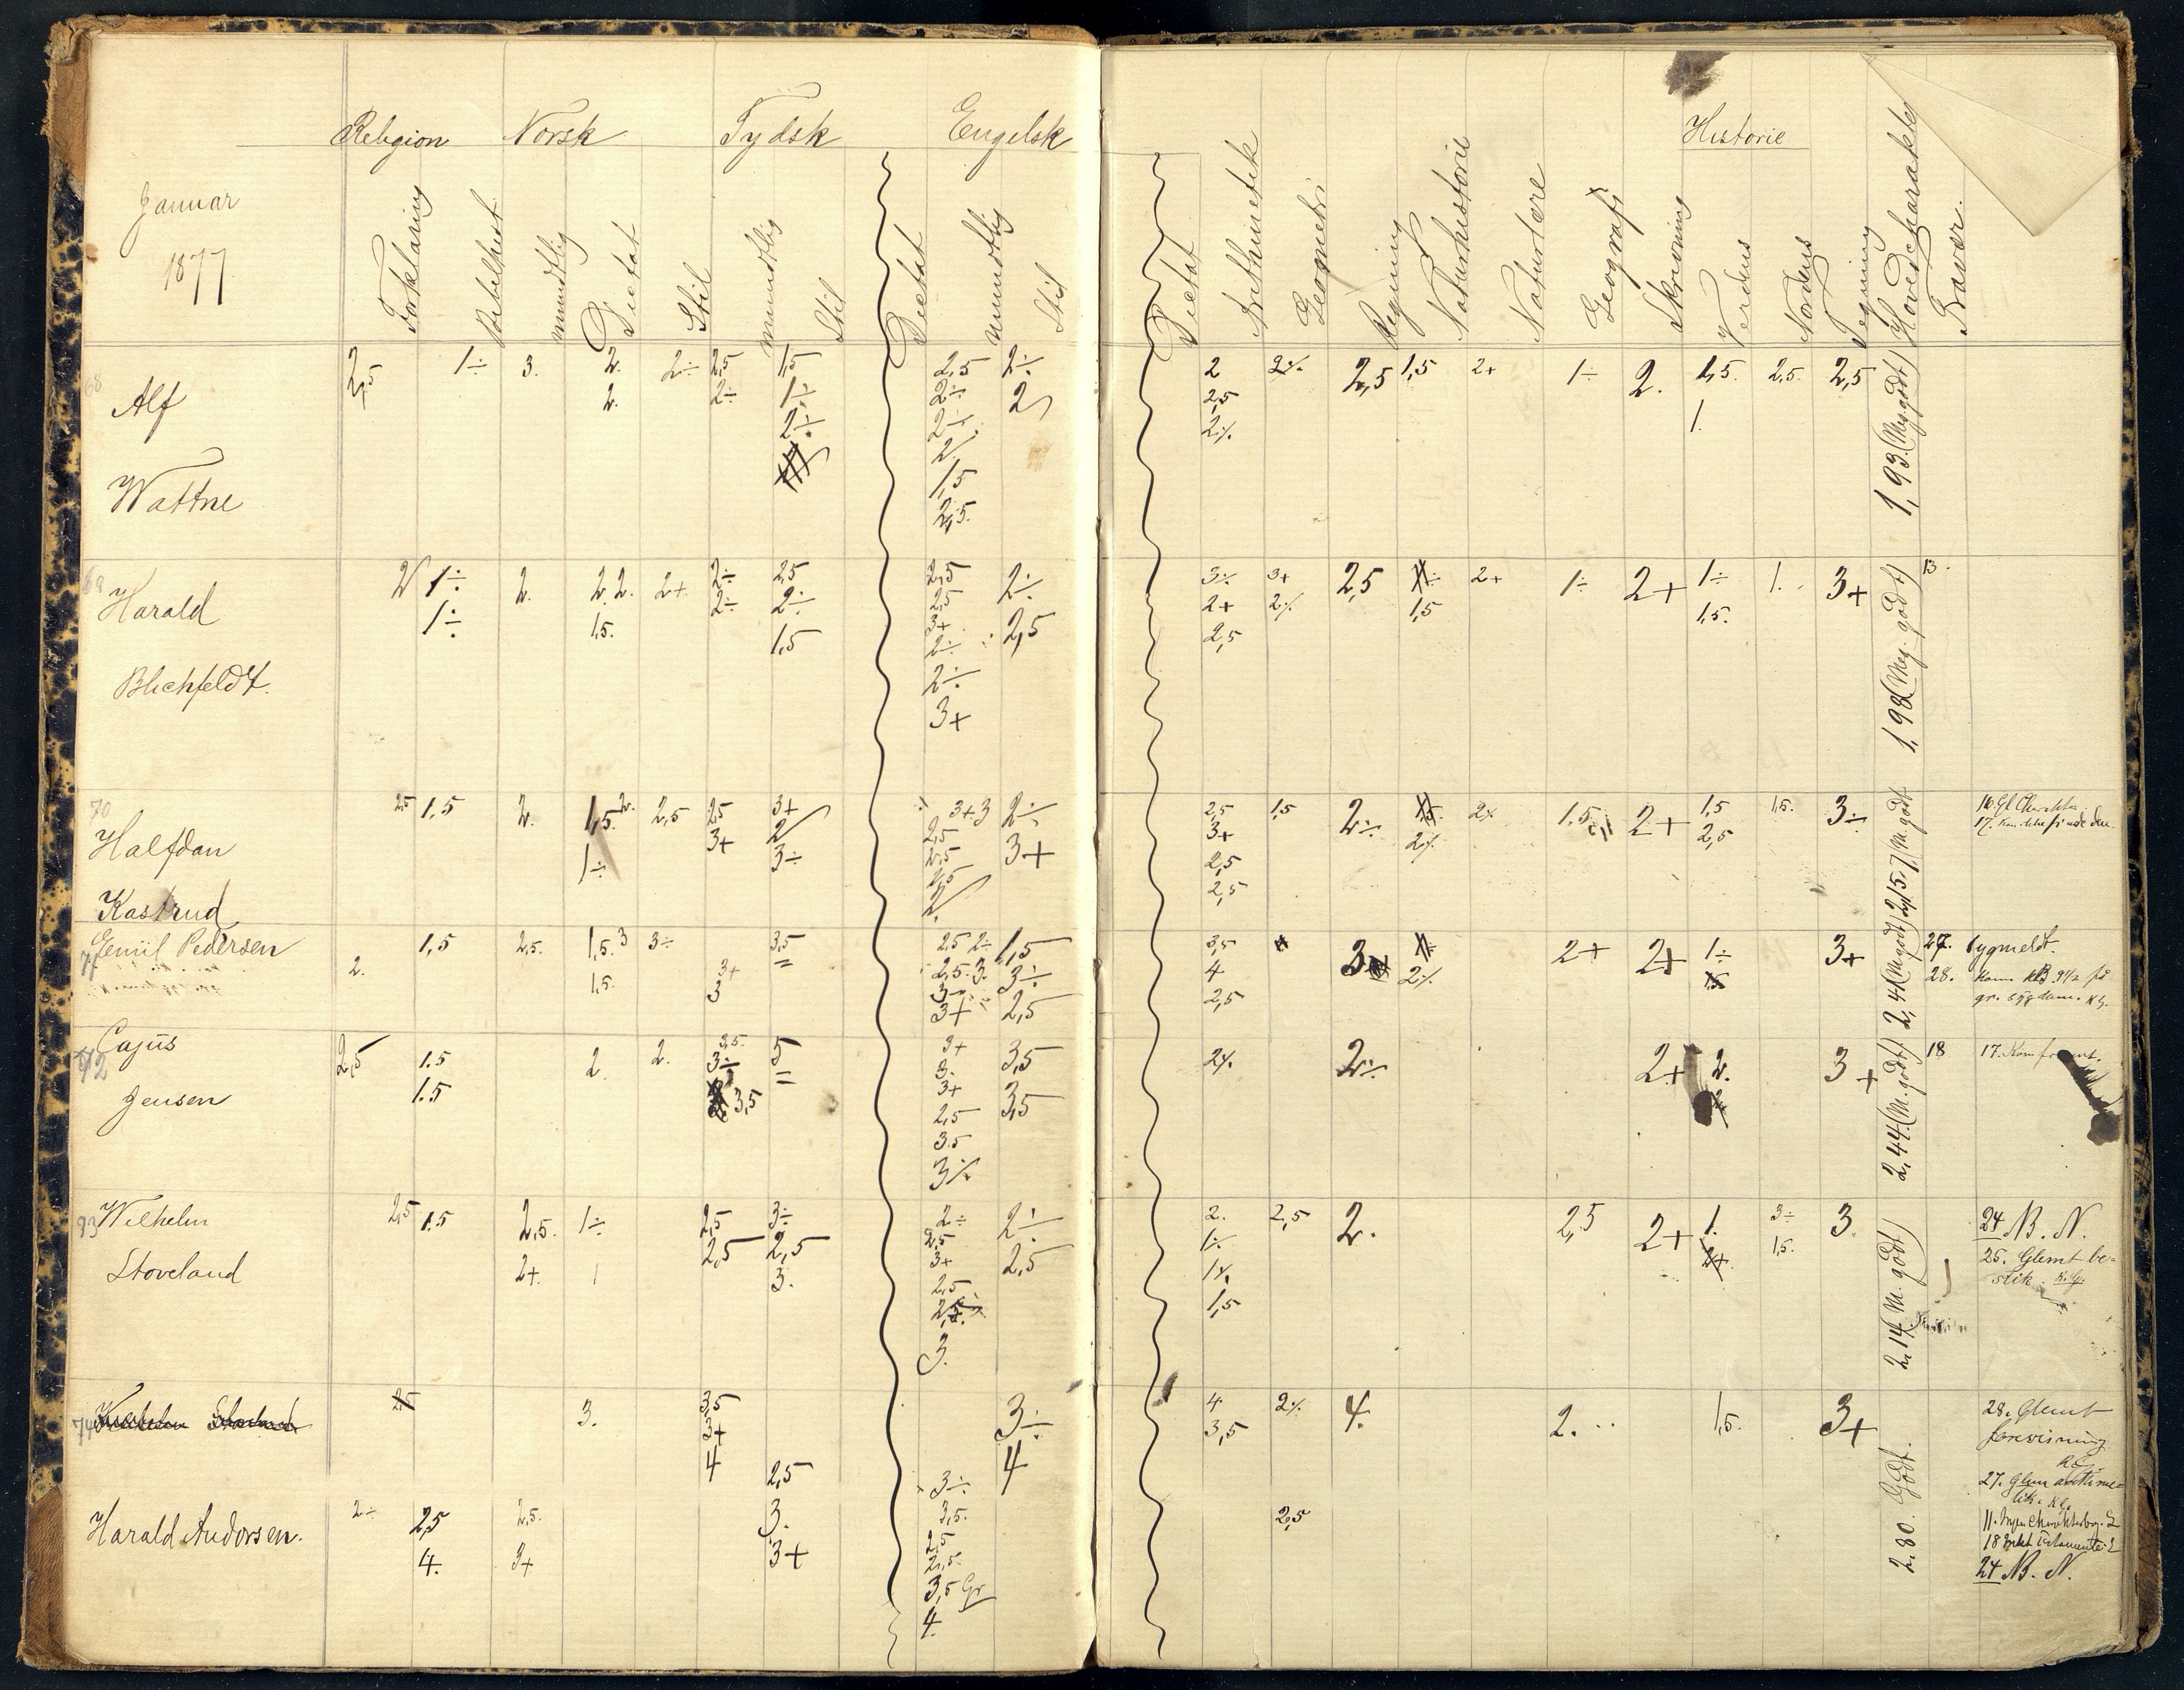 Religion Norsk Tydsk Engelsk
Januar
1877.
Forklaring Bibelhist mundtlig Dictat Stil mundtlig Stil Dictat mundtlig Stil
Historie
Dictat Arithmetik Geometri Regning Naturhistorie Naturlære Geografi Skrivning Verdens Nordens Tegning Hovedcharakter Fravær.
68
Alf
Wattne
2,5 1÷ 3. 2. 2÷ 2,5 1,5 2,5 2÷
2. 2÷ 1÷ 2÷ 2
2÷ 2÷
2
1,5
2,5.
2 2% 2,5 1,5 2+ 1÷ 2. 1,5. 2,5. 2,5
2,5 1.
2%
1,93. (Meg. godt)
69
Harald
Blichfeldt.
2 1÷ 2. 2. 2. 2+ 2÷ 2,5 2,5 2÷
1÷ 1,5. 2÷ 2÷ 2,5 2,5
1,5 3+
2÷
2÷
3+
3÷ 3+ 2,5 2+ 1÷ 2+ 1÷ 1. 3+ 13.
2+ 2% 1,5 1,5.
2,5
1,98 (Meg. godt)
70
Halfdan
Kastrud
2,5 1,5 2. 1,5. 2. 2,5 2,5 3+ 3+3 2÷
1÷ 3+ 2 2,5 3+
3÷ 2,5
2,5
2
2,5 1,5 2÷ 2% 1,5 2+ 1,5 1,5. 3÷
3+ 2% 2,5
2,5
2,5
2,157 (M. godt)
71
Emil Pedersen
2. 1,5 2,5. 1,5. 3 3÷ 3,5 2,5 2÷ 1,5
1,5. 3+ 2,5. 3. 3÷
3 3+ 2,5
3,5 3 2+ 2+ 1÷ 3+ 27. Sygmeldt.
4 2% 28.
2,5
2,4 (M. godt)
72
Cajus
Jensen
2,5 1.5 2. 2. 3,5. 5 3+ 3,5
1.5 3÷ 3. 3,5
3,5 3+
2,5
3.5
3%
2% 2÷ 2+ 2. 3+ 18 17.
2,44. (M. godt)
73
Wilhelm
Stoveland
2,5 1.5 2,5. 1÷ 2,5 3÷ 2÷ 2÷
2+. 1 2,5 2,5 2,5 2,5
3. 3+
2,5
3.
2. 2,5 2. 2,5 2+ 1. 3÷ 3. 24 B. N.
1÷ 1,5. 25. Glemt be-
1% stik. K.G.
1,5
2.14 (M. godt)
74
3. 3,5 3÷
3+ 4
4 2,5
4 2% 4. 2. 1,5. 3+ 28. Glemt
3,5
Harald Andorsen.
2÷ 2,5 2,5. 3. 3÷
4. 3+ 3+ 3,5.
2,5
2,5.
3,5 Gr
4.
2,5
2.80. Godt.
24 B. N.